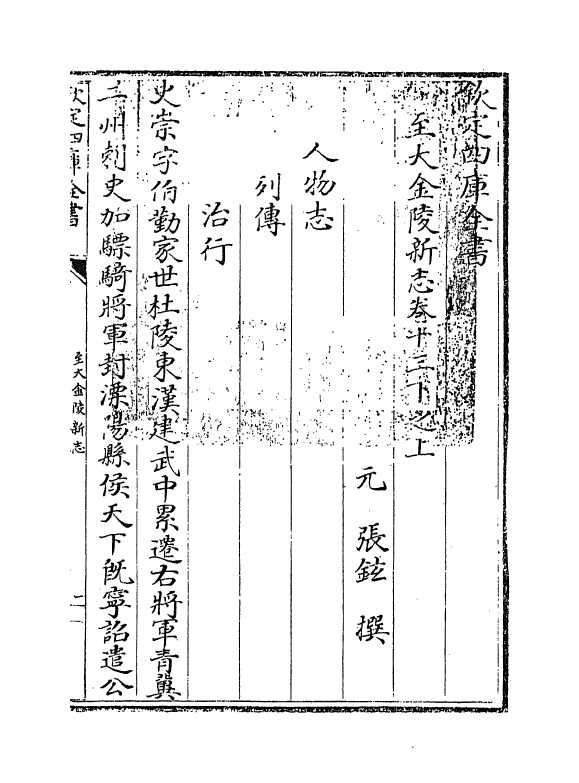 欽定四庫全書
至大金陵新志卷十三下之上
元 張鉉 撰
人物志
列傳
治行
史崇字伯勤家世杜陵東漢建武中累遷右將軍青冀
二州刺史加驃騎將軍封溧陽縣侯天下既寧詔遣公
欽定四庫全書
至大金陵新志